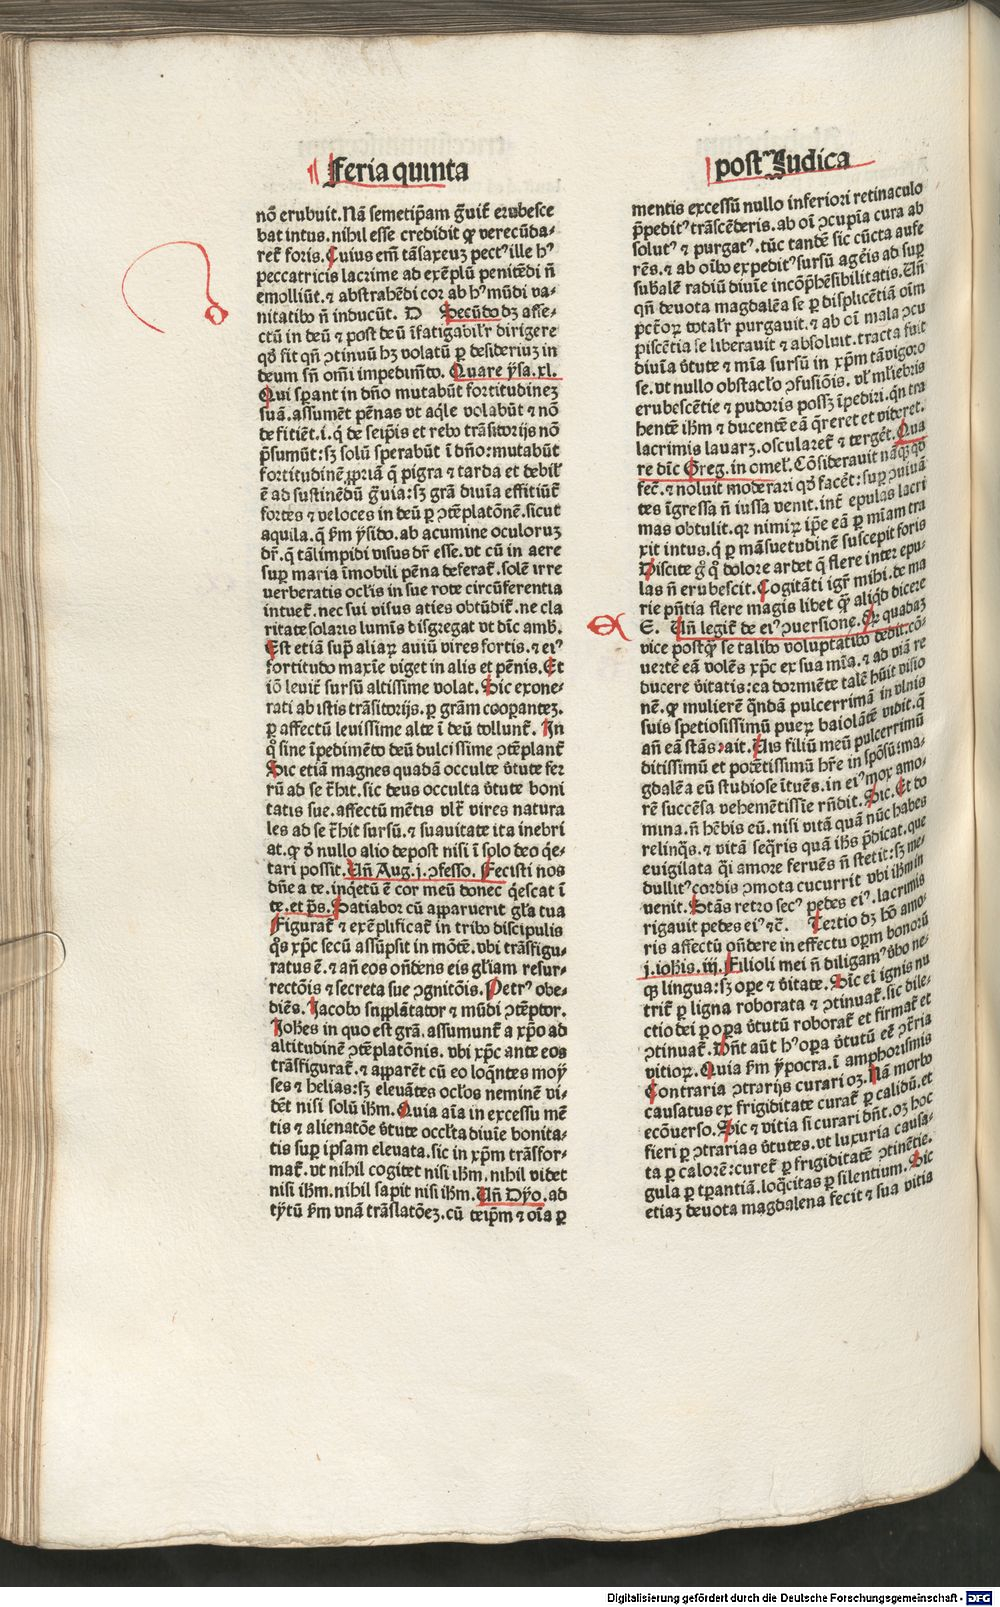 Feria quinta
post Judica
nō erubuit. Nā semetip̄am g̃uiť erubesce
bat intus. nihil esse credidit qͥ verecūda⸗
reť foris. Cuius em̄ tā saxeuʒ pectꝰ ille hꝰ
peccatricis lacrime ad exēplū penitēdi ñ
emolliūt. ⁊ abstrahēdi cor ab hꝰ mūdi va⸗
nitatibꝰ ñ inducūt. D Secūdo dʒ affe⸗
ctū in deū ⁊ post deū īfatigabilʼr dirigere
qđ fit qñ ꝯtinuū hʒ volatū ꝑ desideriuʒ in
deum sñ om̄i impedim̄to. Quare ysa. xl.
Qui sꝑant in dño mutabūt fortitudineʒ
suā. assumēt pēnas vt aq̇le volabūt ⁊ nō
deficiēt .i. q̇ de seip̄is et rebꝰ trāsitorijs nō
p̄sumūt: sʒ solū sperabūt ī dño: mutabūt
fortitudinē ꝓpriā q̄ pigra ⁊ tarda et debiľ
ē ad sustinēdū g̃uia: sʒ grā diuīa efficiūť
fortes ⁊ veloces in deū ꝑ ꝯtēplatōnē. sicut
aquila. q̄ ẜm ysido. ab acumine oculoruʒ
dř. q̄ tā limpidi visus dř esse. vt cū in aere
suꝑ maria īmobili pēna deferať. solē irre
verberatis ocľis in sue rote circūferentia
intueť. nec sui visus acies obtūdiť. ne cla
ritate solaris lumīs disgregať vt dīc amb̄.
Est etiā sup̄ aliaꝝ auiū vires fortis. ⁊ eiꝰ
fortitudo maxīe viget in alis et pēnis. Et
iō leuiť sursū altissime volat. Sic exone⸗
rati ab istis trāsitorijs. ꝑ grām cooꝑanteʒ.
ꝑ affectū leuissime alte ī deū tollunť. In
q̊ sine īpedimēto deū dulcissime ꝯtēplanť
Sic etiā magnes quadā occulte v̓tute fer
rū ad se t̄hit. sic deus occulta v̓tute boni
tatis sue. affectū mētis vlť vires natura
les ad se t̄hit sursū. ⁊ suauitate ita inebri
at. qͥ v̓ nullo alio depost nisi ī solo deo q̇e⸗
tari possit. Uñ Aug. j. ꝯfesso. Fecisti nos
dñe a te. inq̇etū ē cor meū donec q̇escat ī
te. et p̄s. Satiabor cū apparuerit gľa tua
Figurať ⁊ exēplificať in tribꝰ discipulis
q̊s xp̄c secū assūpsit in mōtē. vbi trāsfigu⸗
ratus ē. ⁊ añ eos oñdens eis gľiam resur⸗
rectōis ⁊ secreta sue ꝯgnitōis. Petrꝰ obe⸗
diēs. Jacobꝰ supplātator ⁊ mūdi ꝯtēptor.
Johēs in quo est grā. assumunť a xp̄o ad
altitudinē ꝯtēplatōnis. vbi xp̄c ante eos
trāsfigurať. ⁊ apparēt cū eo loq̄ntes moy
ses ⁊ helias: sʒ eleuātes ocľos neminē vi⸗
dēt nisi solū ihm̄. Quia aīa in excessu mē
tis ⁊ alienatōe v̓tute occľta diuīe bonita⸗
tis suꝑ ipsam eleuata. sic in xp̄m trāsfor⸗
mať. vt nihil cogitet nisi ihm̄. nihil videt
nisi ihm̄. nihil sapit nisi ihm̄. Uñ Dyo. ad
tytū ẜm vnā trāslatōeʒ. cū teip̄m ⁊ oīa ꝑ
mentis excessū nullo inferiori retinaculo
p̄peditꝰ trāscēderis. ab oī ꝯcupīa cura ab
solutꝰ ⁊ purgatꝰ. tūc tandē sic cūcta aufe
rēs. ⁊ ab oībꝰ expeditꝰ sursū ageris ad suꝑ
sub̄alē radiū diuīe incōp̄hēsibilitatis. Uñ
qñ deuota magdalēa se ꝑ displicētiā oīm
pctōꝝ totalʼr purgauit. ⁊ ab oī mala ꝯcu
piscētia se liberauit ⁊ absoluit. tracta fuit
diuīa v̓tute ⁊ mīa sursū in xp̄m tā vigoro
se. vt nullo obstacľo ꝯfusiōis. vľ mľiebris
erubescētie ⁊ pudoris possʒ īpediri. q̇n tra
hentē ihm̄ ⁊ ducentē eā q̄reret et videret.
lacrimis lauarʒ. oscularet ⁊ tergēt. Qua
re dīc Greg. in omeľ. Cōsiderauit nāqʒ qđ
fec̄. ⁊ noluit moderari qđ facēt: suꝑ ꝯuiuā
tes īgressa ñ iussa venit. int̄ epulas lacri
mas obtulit. qr nimiꝝ ip̄e eā ꝑ mīam tra
xit intus. q̇ ꝑ māsuetudinē suscepit foris
Discite g̊ q̊ dolore ardet q̄ flere inter epu⸗
las ñ erubescit. Cogitāti igiť mihi. de ma
rie pñtia flere magis libet q̄ꝫ aliq̇d dicere
E. Uñ legiť de eiꝰ ꝯuersione. Qꝛ quadaʒ
vice postq̄ꝫ se talibꝰ voluptatibꝰ dedit. cō⸗
uertē eā volēs xp̄c ex sua mīa. ⁊ ad viā re
ducere v̓itatis: ca dormiēte talē hūit visio
nē. qͥ mulierē q̄ndā pulcerrimā in vlnis
suis speciosissimū pueꝝ baiolātē vidit. q̄
añ eā stās ait. Eis filiū meū pulcerrimū
ditissimū et potētissimū hr̄e in spōsū: ma⸗
gdalēa eū studiose ītuēs. in eiꝰ mox amo⸗
rē succēsa vehemētissīe rñdit. Sic. Et do
mina. ñ hēbis eū. nisi vitā quā nūc habes
relinq̄s. ⁊ vitā seq̄ris quā ih̄s p̄dicat. que
euigilata q̇i amore feruēs ñ stetit: sʒ me⸗
dullitꝰ cordis ꝯmota cucurrit vbi ihm̄ in
venit. Stās retro secꝰ pedes eiꝰ. lacrimis
rigauit pedes eiꝰ ⁊c̄. Tertio dʒ hō amo⸗
ris affectū oñdere in effectu oꝑm bonoꝝ
j. ioh̄is. iij. Filioli mei ñ diligamꝰ v̓bo ne⸗
qʒ lingua: sʒ oꝑe ⁊ v̓itate. Sic̄ ei ignis nu
triť ꝑ ligna roborata ⁊ ꝯtinuať. sic dile⸗
ctio dei ꝑ oꝑa v̓tutū roborať et firmať et
ꝯtinuať. Dñt aūt hꝰ oꝑa v̓tutū eē ꝯtr̄ia
vitioꝝ. Quia ẜm ypocra. ī amphorismis
Contraria ꝯtrarijs curari oʒ. Nā morbꝰ
causatus ex frigiditate curať ꝑ calidū. et
ecōuerso. Sic ⁊ vitia si curari dñt. oʒ hoc
fieri ꝑ ꝯtrarias v̓tutes. vt luxuria causa⸗
ta ꝑ calorē: cureť ꝑ frigiditatē ꝯtinētie.
gula ꝑ tꝑantiā. loq̄citas ꝑ silentium. Sic
etiaʒ deuota magdalena fecit ⁊ sua vitia
Digitalisierung gefördert durch die Deutsche Forschungsgemeinschaft - DFG